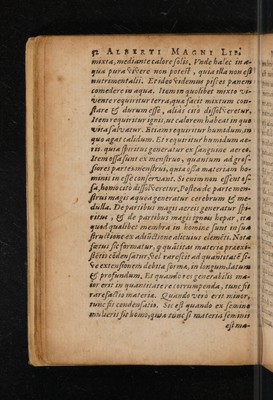 52 ALBERTI MAGNI LIB.
mixta, mediante calore solis, Vnde halec in a-
qua pura vivere non potest, quia illa non est
nutrimentalis. Et ideo videmus pisces panem
comedere in aqua. Item in quolibet mixto vi-
vente requiritur terra, qua facit mixtum con-
stare & durum esse, aliàs citò dissolveretur.
Item requiritur ignis, ut calorem habeat in quo
vita salvatur. Etiam requiritur humidum, in
quo agat calidum. Et requiritur humidum aë-
ris, quia spiritus generatur ex sanguine aëreo.
Item ossa sunt ex menstruo, quantum ad gros-
siores partes menstrui, quia ossa materiam ho-
minis in esse conservant. Si enim non essent os-
sa, homo citò dissolveretur. Postea de parte men-
strui magis aquea generatur cerebrum & me-
dulla. De partibus magis aëreis generatur spi-
ritus, & de partibus magis igneis hepar, ita
quod qualibet membra in homine sunt in sua
structione ex adiunctione alicuius elementi. Nota
fœtus sic formatur, quod quantitas materia praexi-
stentis condensatur, vel rarescit ad quantitatem si-
ve extensionem debita forma, in longum, latum
& profundum. Et quando res generabilis ma-
ior erit in quantitate re corrumpenda, tunc fit
rarefactio materia. Quando verò erit minor,
tunc fit condensatio. Sic est quando ex semine
mulieris fit homo, quia tunc si materia seminis
est ma-